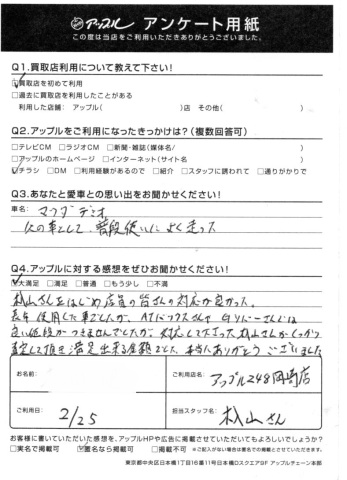 アップル アンケート用紙
この度は当店をご利用いただきありがとうございました。
Q1.買取店利用について教えて下さい!
☑買取店を初めて利用
□過去に買取店を利用したことがある
利用した店舗: アップル( )店 その他( )
Q2.アップルをご利用になったきっかけは?(複数回答可)
□テレビCM □ラジオCM □新聞・雑誌(媒体名/ )
□アップルのホームページ □インターネット(サイト名 )
☑チラシ □DM □利用経験があるので □紹介 □スタッフに誘われて □通りがかりで
Q3.あなたと愛車との思い出をお聞かせください!
車名: マツダ デミオ
父の車として、普段使いによく走った
Q4.アップルに対する感想をぜひお聞かせください!
☑大満足 □満足 □普通 □もう少し □不満
杉山さんをはじめ店員の皆さんの対応が良かった。
長年使用した車でしたが、
良い値段がつきませんでしたが、対応して下さった杉山さんがしっかり
査定して頂き満足出来る金額でした。本当にありがとうございました
お名前: ご利用店名: アップル248岡崎店
ご利用日: 2/25 担当スタッフ名: 杉山さん
お客様に書いていただいた感想を、アップルHPや広告に掲載させていただいてもよろしいでしょうか?
□実名で掲載可 ☑匿名なら掲載可 □掲載不可 ※ご記入がない場合は匿名での掲載とさせていただきます。
東京都中央区日本橋1丁目16番11号日本橋Dスクエア9F アップルチェーン本部